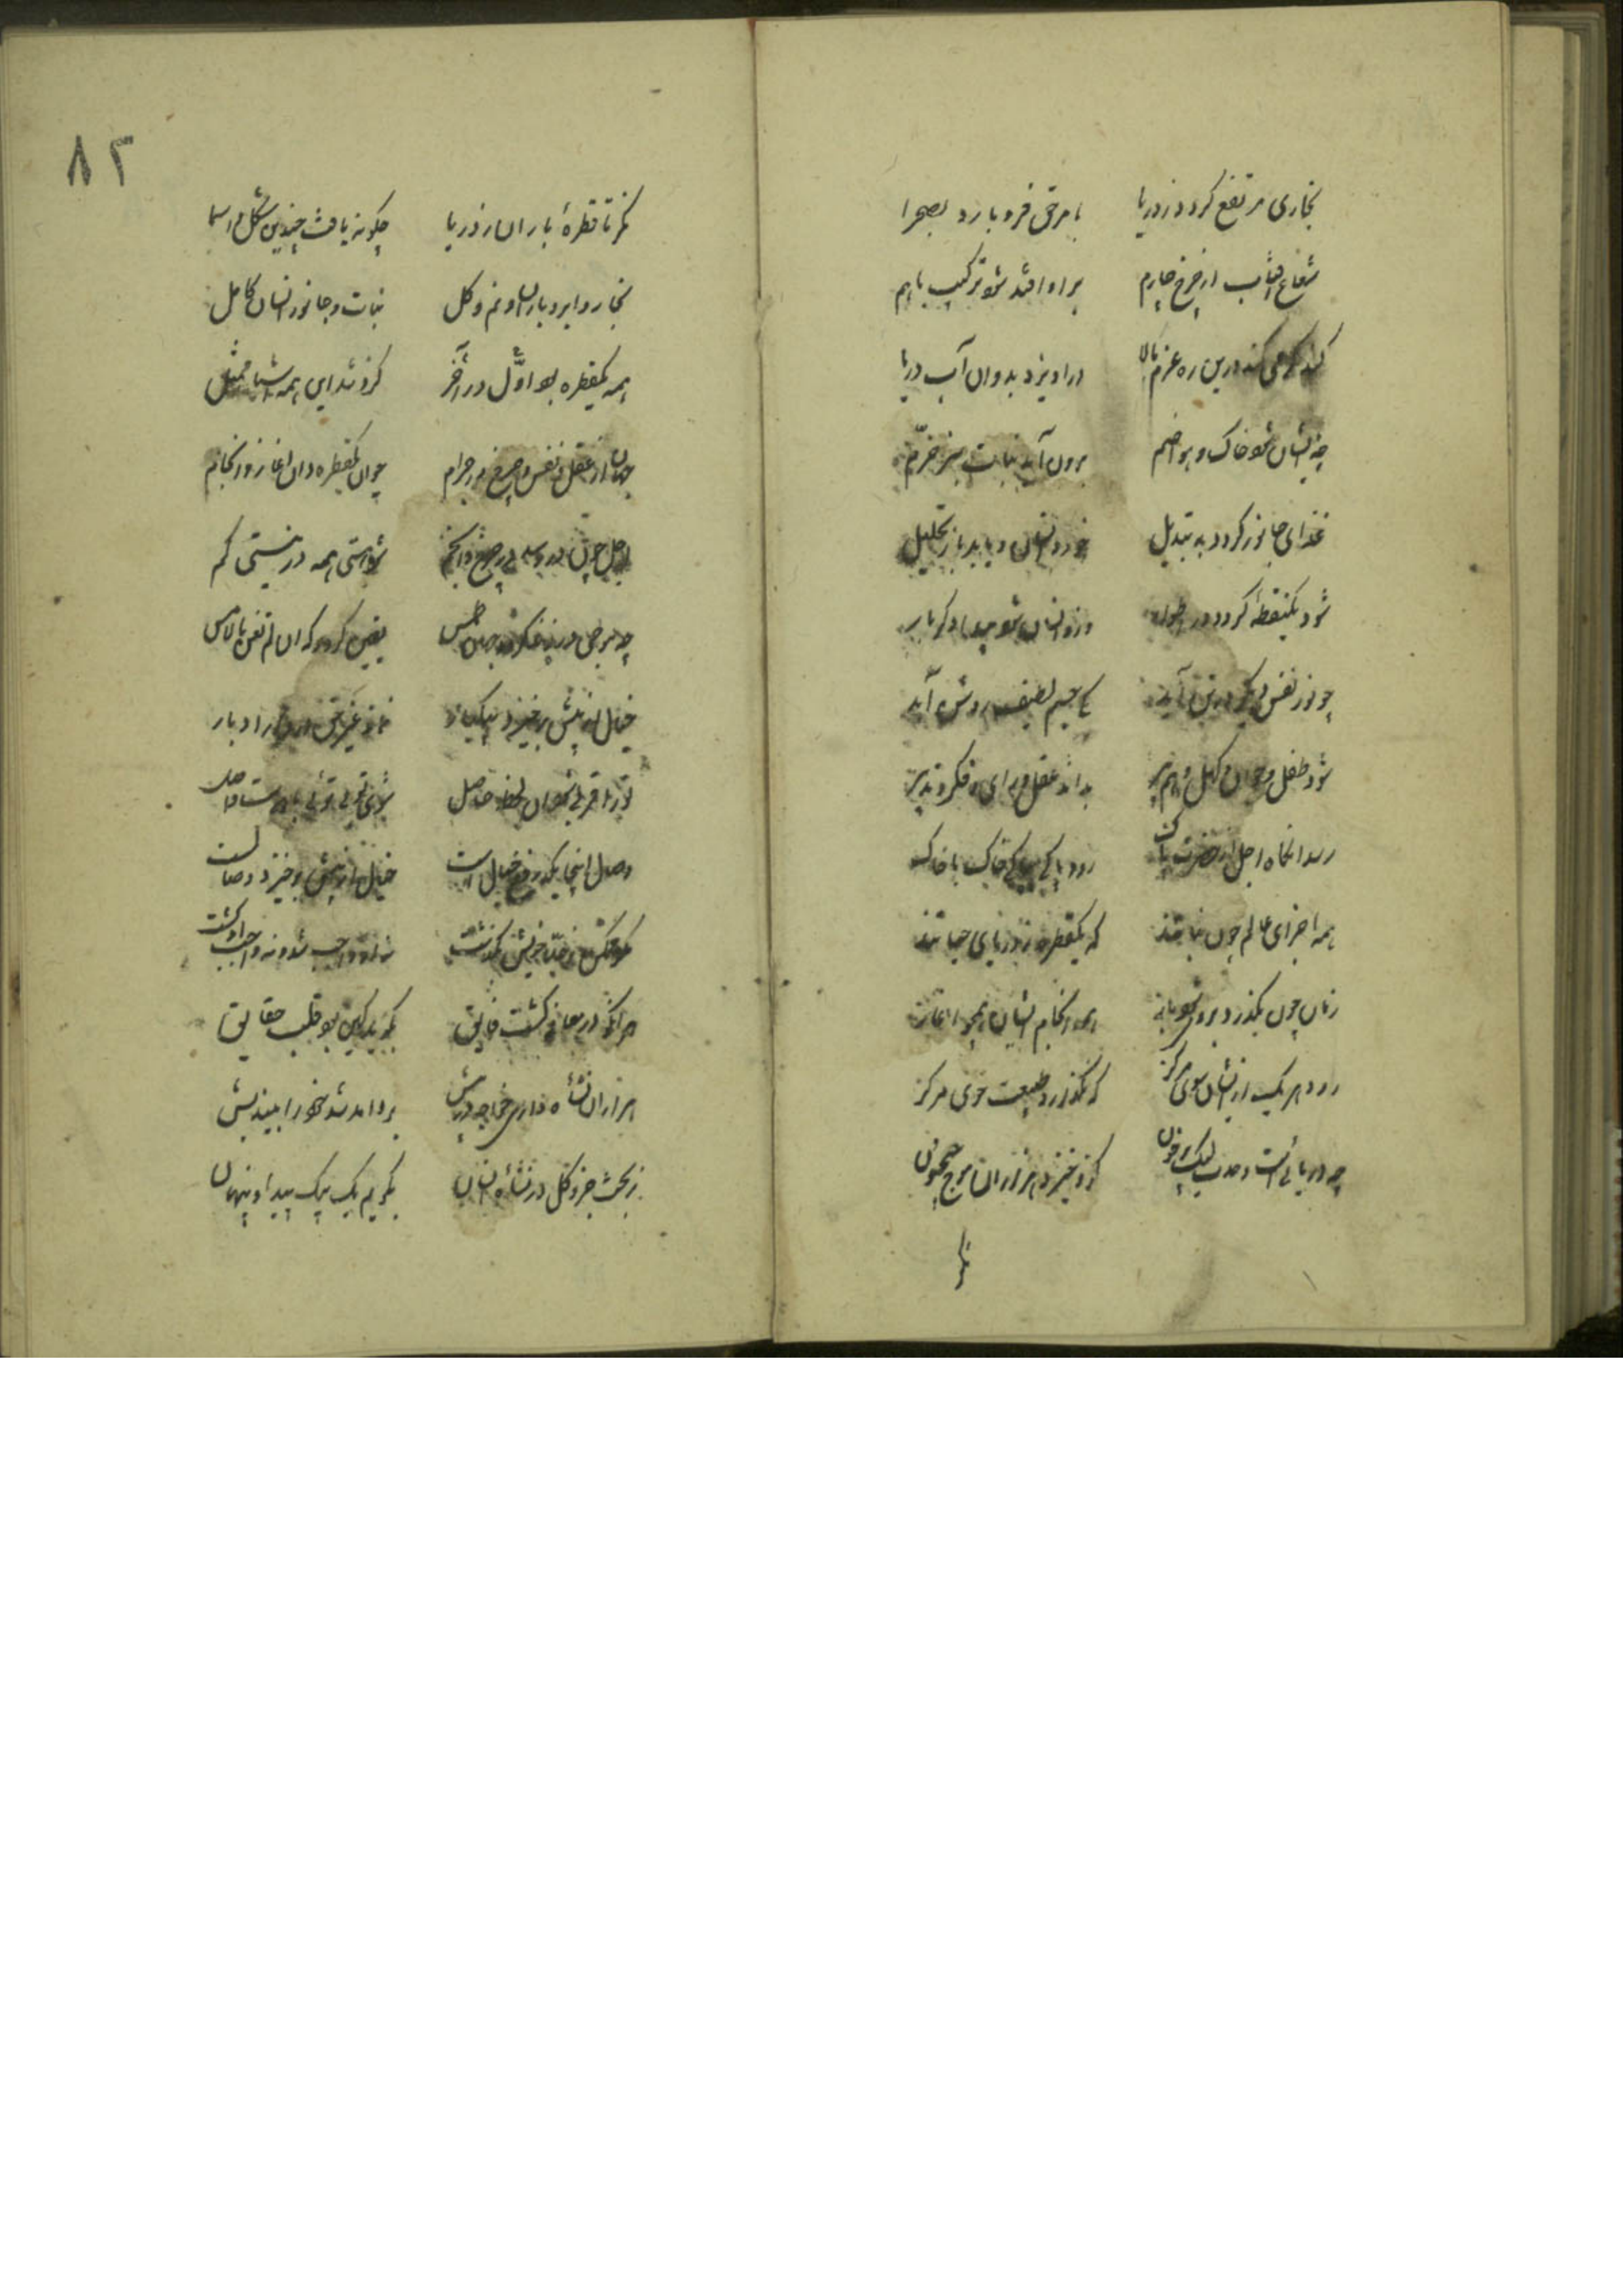 بخاری مرتفع کردد ز دریا بامر حق فرو بارد بصحرا
شعاع افتاب از چرخ چارم براو افتد شود ترکیب باهم
کند کرمی کند درین ره عزم بالا دراویزد بدو ان آب دریا
چه ایشان شود خاک و هوا ضم برون آید نبات سبز خرّم
غذای جانور کردد به تبدیل خورد انسان و یابد باز تحلیل
شود یکنقطه کردد در اطوار وزو انسان شود پیدا دکر بار
چو نور نفس کویا در تن آید یکی جسم لطیف روشن آید
شود طفل و جوان و کهل و هم پیر بداند عقل و رای و فکر و تدبیر
رسد انکاه اجل از حضرت پاک رود پاکی به پاکی خاک با خاک
همه اجزای عالم چون نباتند که یکقطره ز دریای حیاتند
زمان چون بکذرد بروی شود باز همه انجام ایشان همچو اغاز
رود هر یک از ایشان سوی مرکز که نکذارد طبیعت خوی مرکز
چه دریائست وحدت لیک پر خون کزو خیزد هزاران موج جیحون
نکر تا قطرهٔ باران ز دریا چکونه یافت چندین شکل و اسما
بخار و ابر و باران و نم و کل نبات و جانور انسان کامل
همه یکقطره بود اوّل در آخر کزو شد این همه اشیا ممثل
جهان از عقل و نفس و چرخ و اجرام چو ان یکقطره دان اغاز و انجام
اجل چون در رسد در چرخ و انجم شود هستی همه در نیستی کم
چه موجی بر زند کردد جهان طمس یقین کردد کان لم تغن بالامس
خیال از پیش برخیزد بیکبار نماند غیر حق در دار دیار
تورا قربی شود ان لحظه حاصل شوی تو بی توئی با دوست واصل
وصال اینجایکه رفع خیال است خیال از پیش برخیزد وصالست
مکو ممکن ز حدّ خویش بکذشت نه او واجب شد و نه واجب او کشت
هرانکو در معانی کشت فایق نکوید کین بود قلب حقایق
هزاران نشأه داری خواجه در پیش برو امد شد خود را بیندیش
ز بحث جزو و کل در نشأه انسان بکویم یک بیک پیدا و پنهان
۸۲